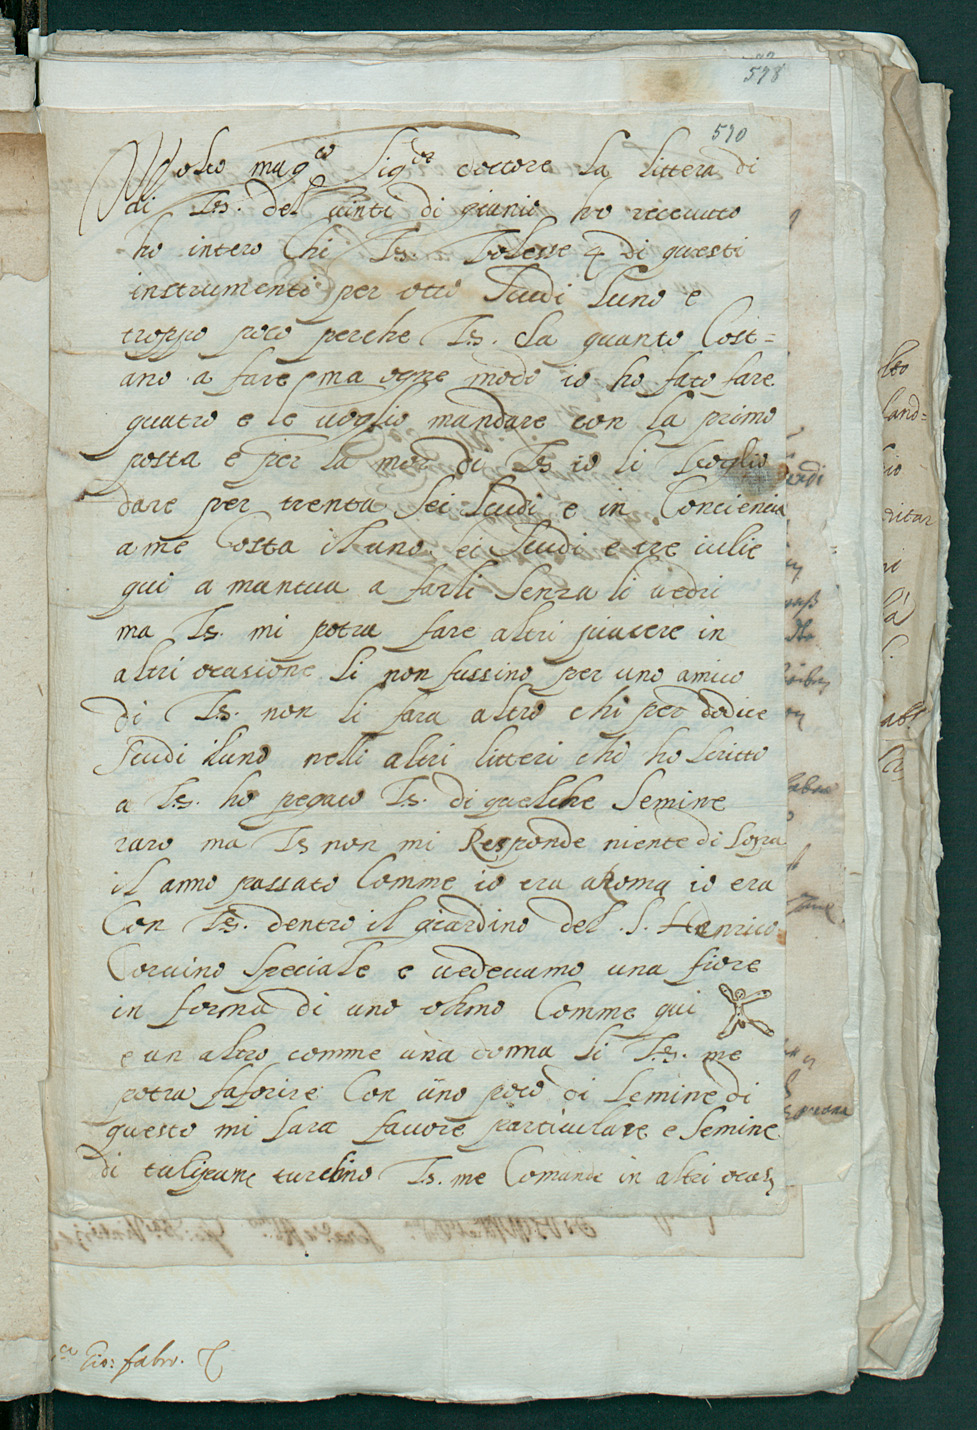 578
590
Molto mag.co Sig.or dottore la littera di
di V.S. del vinti di giunio ho recevuto
ho inteso Chi V.S. Volesse 4 di questi
instrumenti per otto Scudi luno e
troppo poco perche V.S. sa quanto Cost=
ano a fare ma ogne modo io ho fato fare
quatro e le voglio mandare con la primo
posta e per la mor di VS io li voglio
dare per trenta sei scudi e in Conciencia
a me Costa il uno sei Scudi e tre iulie
qui a mantua a farli senza li vedri
ma VS. mi potra fare altri piacere in
altri ocasione si non fussino per uno amico
di VS. non li fara altro chi per dodice
Scudi iluno nelli altri litteri chi ho scritto
a VS. ho pegato VS. di quelche Semine
raro ma VS non mi Responde niente di sopra
il anno passato Comme io era a Roma io era
Con VS. dentro il giardino del S. Henrico
Corvino Speciale e vedevamo una fiore
in forma di uno ohmo Comme qui
e un altro comme una donna si V.S. me
potra faforire Con uno poco di semine di
questo mi sara favore particulare e semine
di tulipane turchino VS. me Comanda in altri ocas
Gio: fabro.